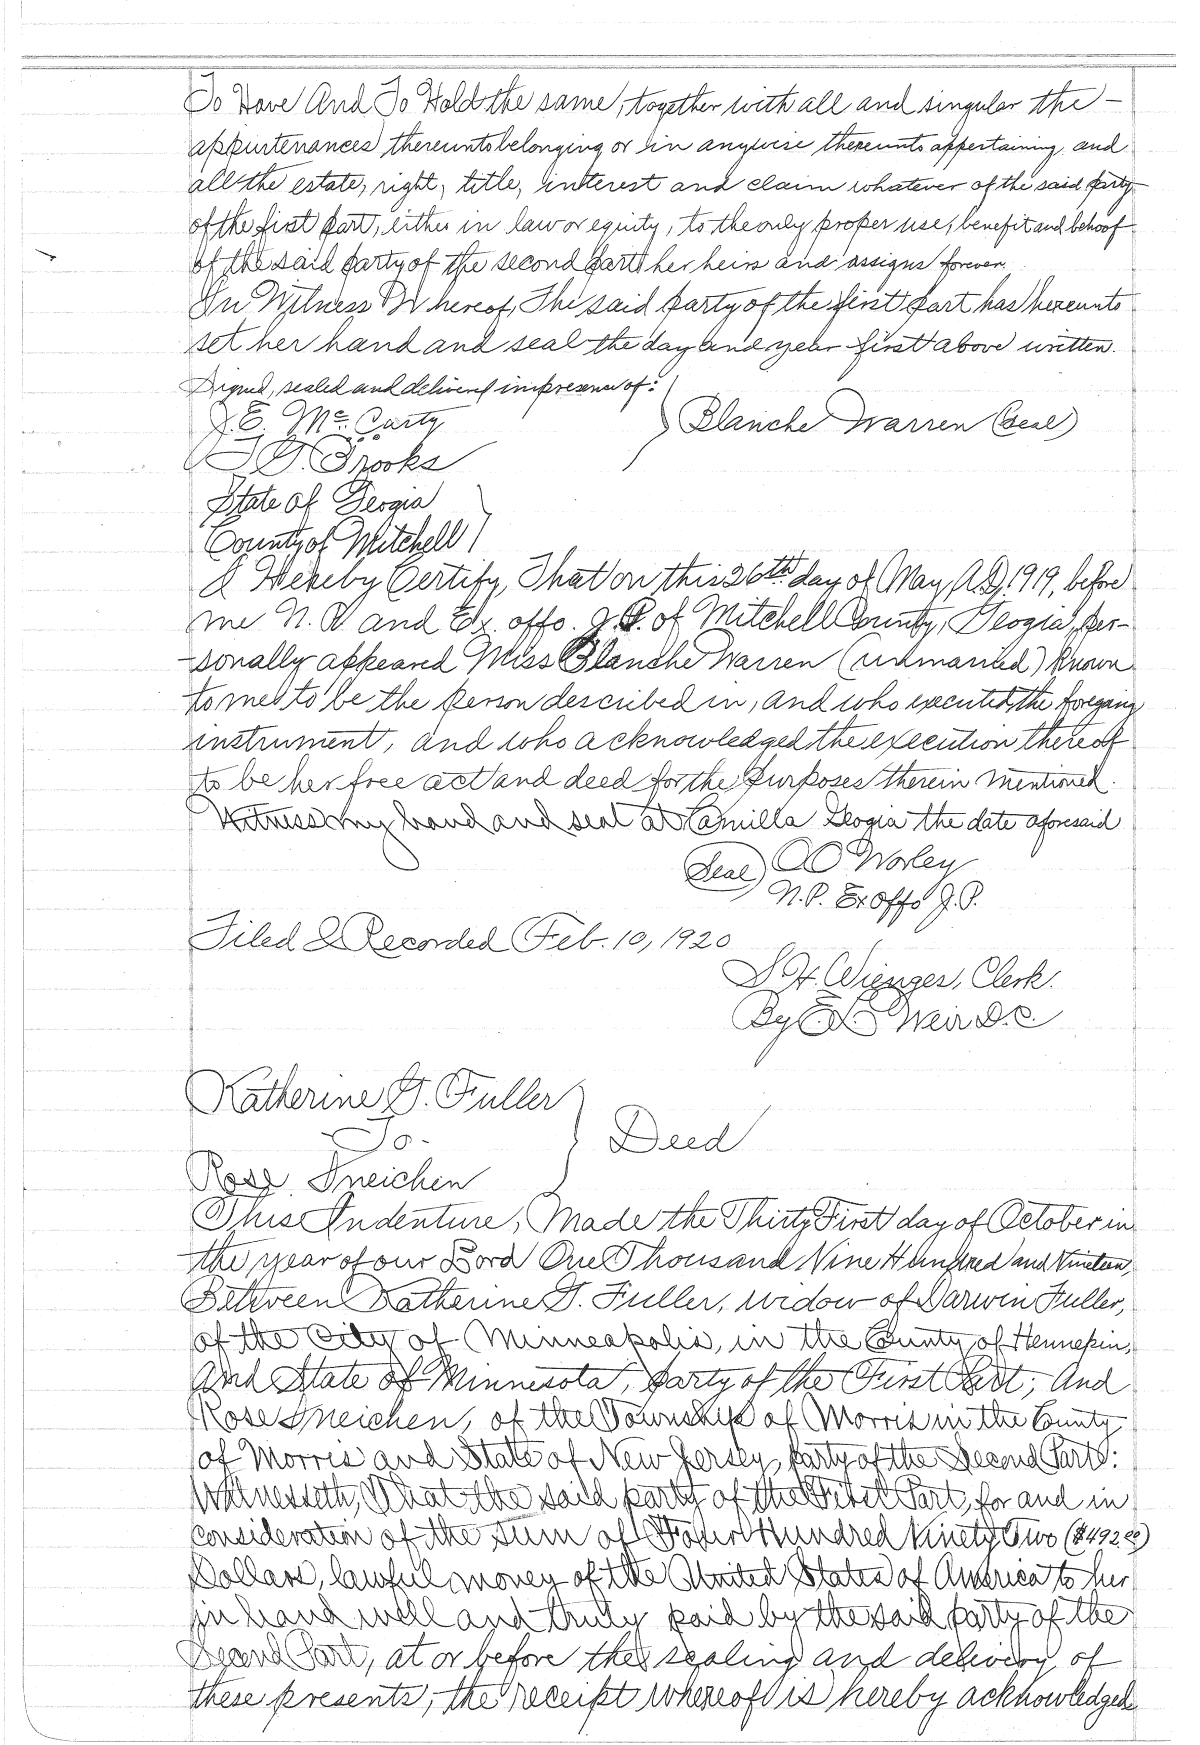 To Have And To Hold the same, together with all and singular the –
appurtenances thereunto belonging or in anywise thereunto appertaining and
all the estate, right, title, interest and claim whatever of the said party
of the first part, either in law or equity, to the only proper use, benefit and behoof
of the said party of the second part her heirs and assigns forever.
In Witness Whereof, The said party of the first part has hereunto
set her hand and seal the day and year first above written.
Signed, sealed and delivered in presence of:
J. E. McCarty
Blanche Warren (Seal)
Brooks
State of Geogia
County of Mitchell
I Hereby Certify, That on this 26th day of May, A.D. 1919, before
me N. P. and Ex. offo. J.P. of Mitchell County, Georgia, per-
-sonally appeared Miss Blanche Warren (unmarried) known
to me to be the person described in, and who executed the foregoing
instrument, and who acknowledged the execution thereof
to be her free act and deed for the purposes therein mentioned.
Witness my hand and seal at Camilla Geogia the date aforesaid
(Seal) CO Worley
N.P. Ex Offo J.P.
Filed & Recorded Feb. 10, 1920
S. H. Wienges, Clerk.
By E. L. Weir D.C.
Katherine G. Fuller
–To–
Deed
Rose Ineichen
This Indenture, Made the Thirty First day of October in
the year of our Lord One Thousand Nine Hundred and Nineteen,
Between Katherine G. Fuller, widow of Darwin Fuller,
of the City of Minneapolis, in the County of Hennepin,
And State of Minnesota, party of the First Part; And
Rose Ineichen, of the Township of Morris in the County
of Morris and State of New Jersey, party of the Second Part:
Witnesseth, That the said party of the First Part, for and in
consideration of the sum of Four Hundred Ninety Two ($492.00)
Dollars, lawful money of the United States of America to her
in hand well and truly paid by the said party of the
Second Part, at or before the sealing and delivery of
these presents, the receipt whereof is hereby acknowledged